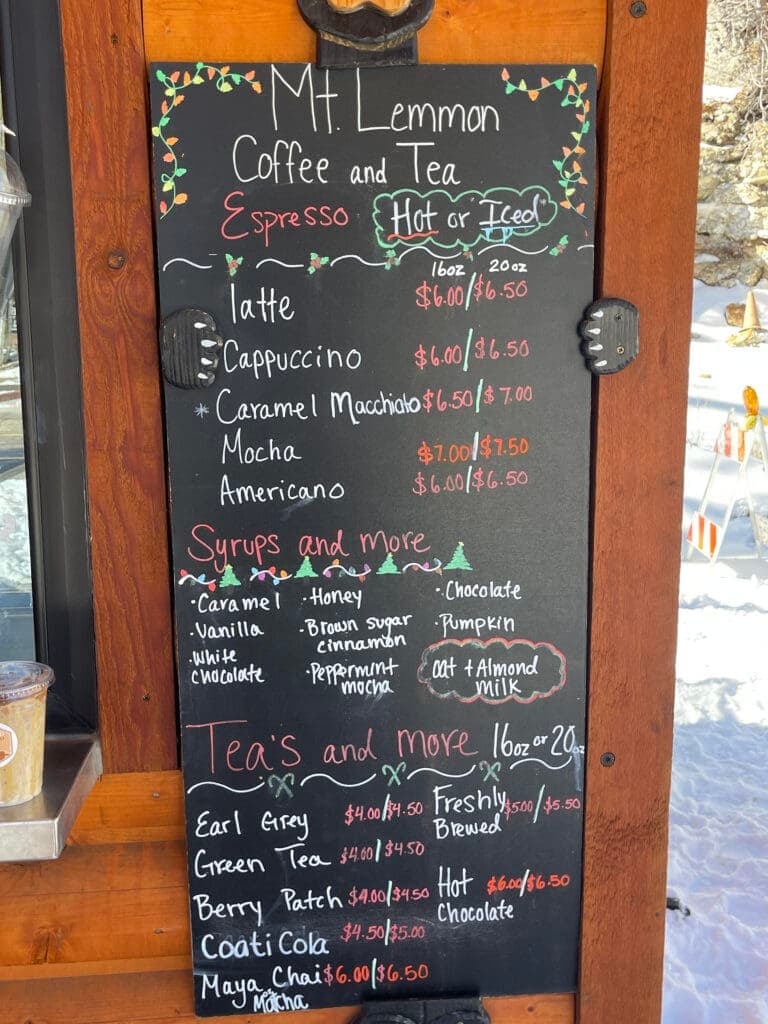 Mt. Lemmon
Coffee and Tea
Espresso "Hot or "Iced"
16oz 20oz
latte $6.00/$6.50
Cappuccino $6.00/$6.50
* Caramel Macchiato $6.50/$7.00
Mocha $7.00/$7.50
Americano $6.00/$6.50
Syrups and more
·Caramel ·Honey ·Chocolate
·Vanilla ·Brown sugar cinnamon ·Pumpkin
·White chocolate ·Peppermint mocha oat + Almond milk
Tea's and more 16oz or 20oz
Earl Grey $4.00/$4.50 Freshly Brewed $5.00/$5.50
Green Tea $4.00/$4.50
Berry Patch $4.00/$4.50 Hot Chocolate $6.00/$6.50
Coati Cola $4.50/$5.00
Maya Chai $6.00/$6.50
or Matcha